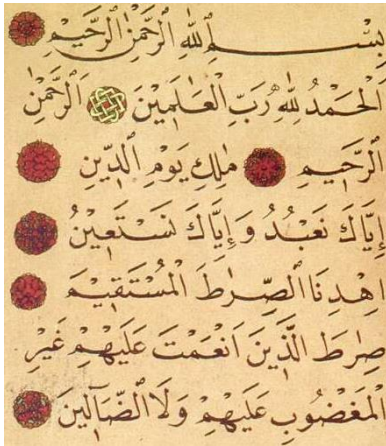 بِسْمِ اللهِ الرَّحْمٰنِ الرَّحِيمِ
اَلْحَمْدُ لِلّٰهِ رَبِّ الْعَالَمِينَ اَلرَّحْمٰنِ
الرَّحِيمِ مٰلِكِ يَوْمِ الدِّينِ
اِيَّاكَ نَعْبُدُ وَاِيَّاكَ نَسْتَعِينُ
اِهْدِنَا الصِّرٰطَ الْمُسْتَقِيمَ
صِرٰطَ الَّذِينَ اَنْعَمْتَ عَلَيْهِمْ غَيْرِ
الْمَغْضُوبِ عَلَيْهِمْ وَلَا الضَّٓالِّينَ